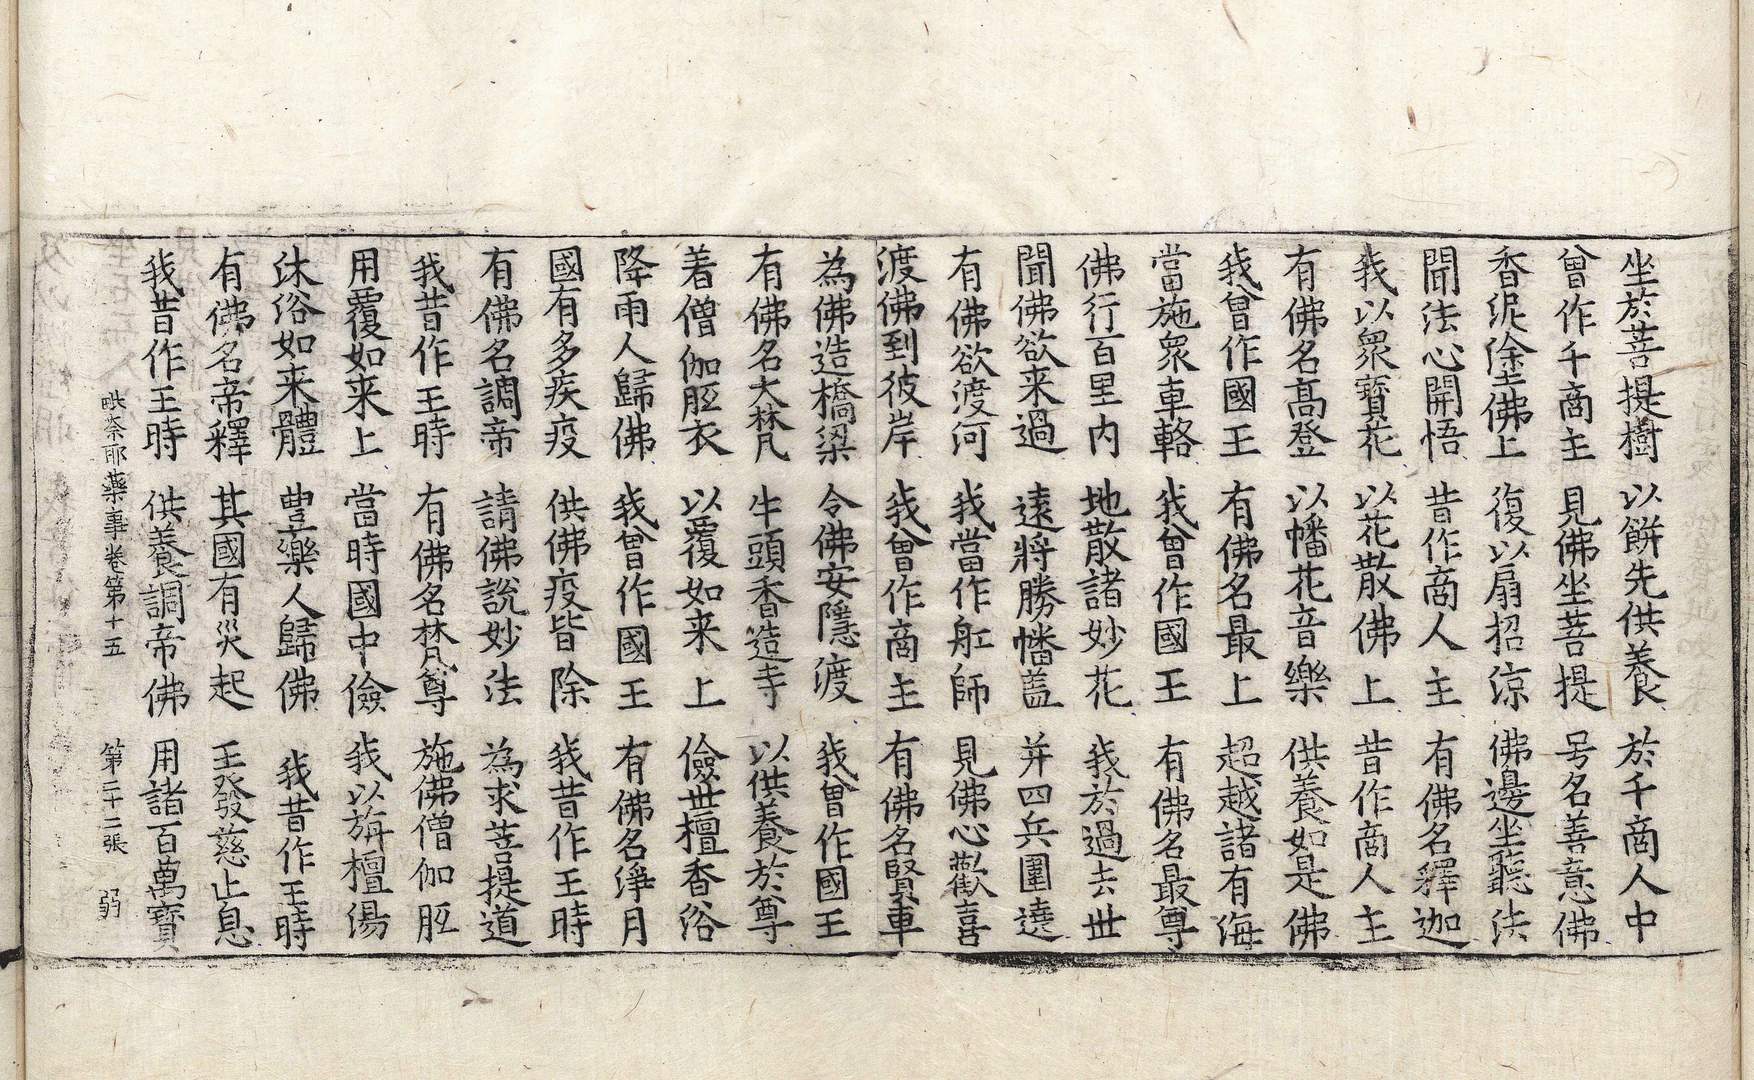 坐於菩提樹 以餅先供養 於千商人中
曾作千商主 見佛坐菩提 号名善意佛
香泥塗佛上 復以扇招涼 佛邊坐聽法
聞法心開悟 昔作商人主 有佛名釋迦
我以衆寶花 以花散佛上 昔作商人主
有佛名高登 以幡花音樂 供養如是佛
我曾作國王 有佛名最上 超越諸有海
當施衆車輅 我曾作國王 有佛名最尊
佛行百里内 地散諸妙花 我於過去世
聞佛欲来過 遠將勝幡盖 并四兵圍遶
有佛欲渡河 我當作舡師 見佛心歡喜
渡佛到彼岸 我曾作商主 有佛名賢車
為佛造橋梁 令佛安隱渡 我曾作國王
有佛名大梵 牛頭香造寺 以供養於尊
着僧伽胝衣 以覆如来上 儉世檀香浴
降雨人歸佛 我曾作國王 有佛名淨月
國有多疾疫 供佛疫皆除 我昔作王時
有佛名調帝 請佛說妙法 為求菩提道
我昔作王時 有佛名梵尊 施佛僧伽胝
用覆如来上 當時國中儉 我以旃檀湯
沐浴如来體 豊樂人歸佛 我昔作王時
有佛名帝釋 其國有災起 王發慈止息
我昔作王時 供養調帝佛 用諸百萬寶
毗奈耶藥事卷第十五 第二十二張 弱